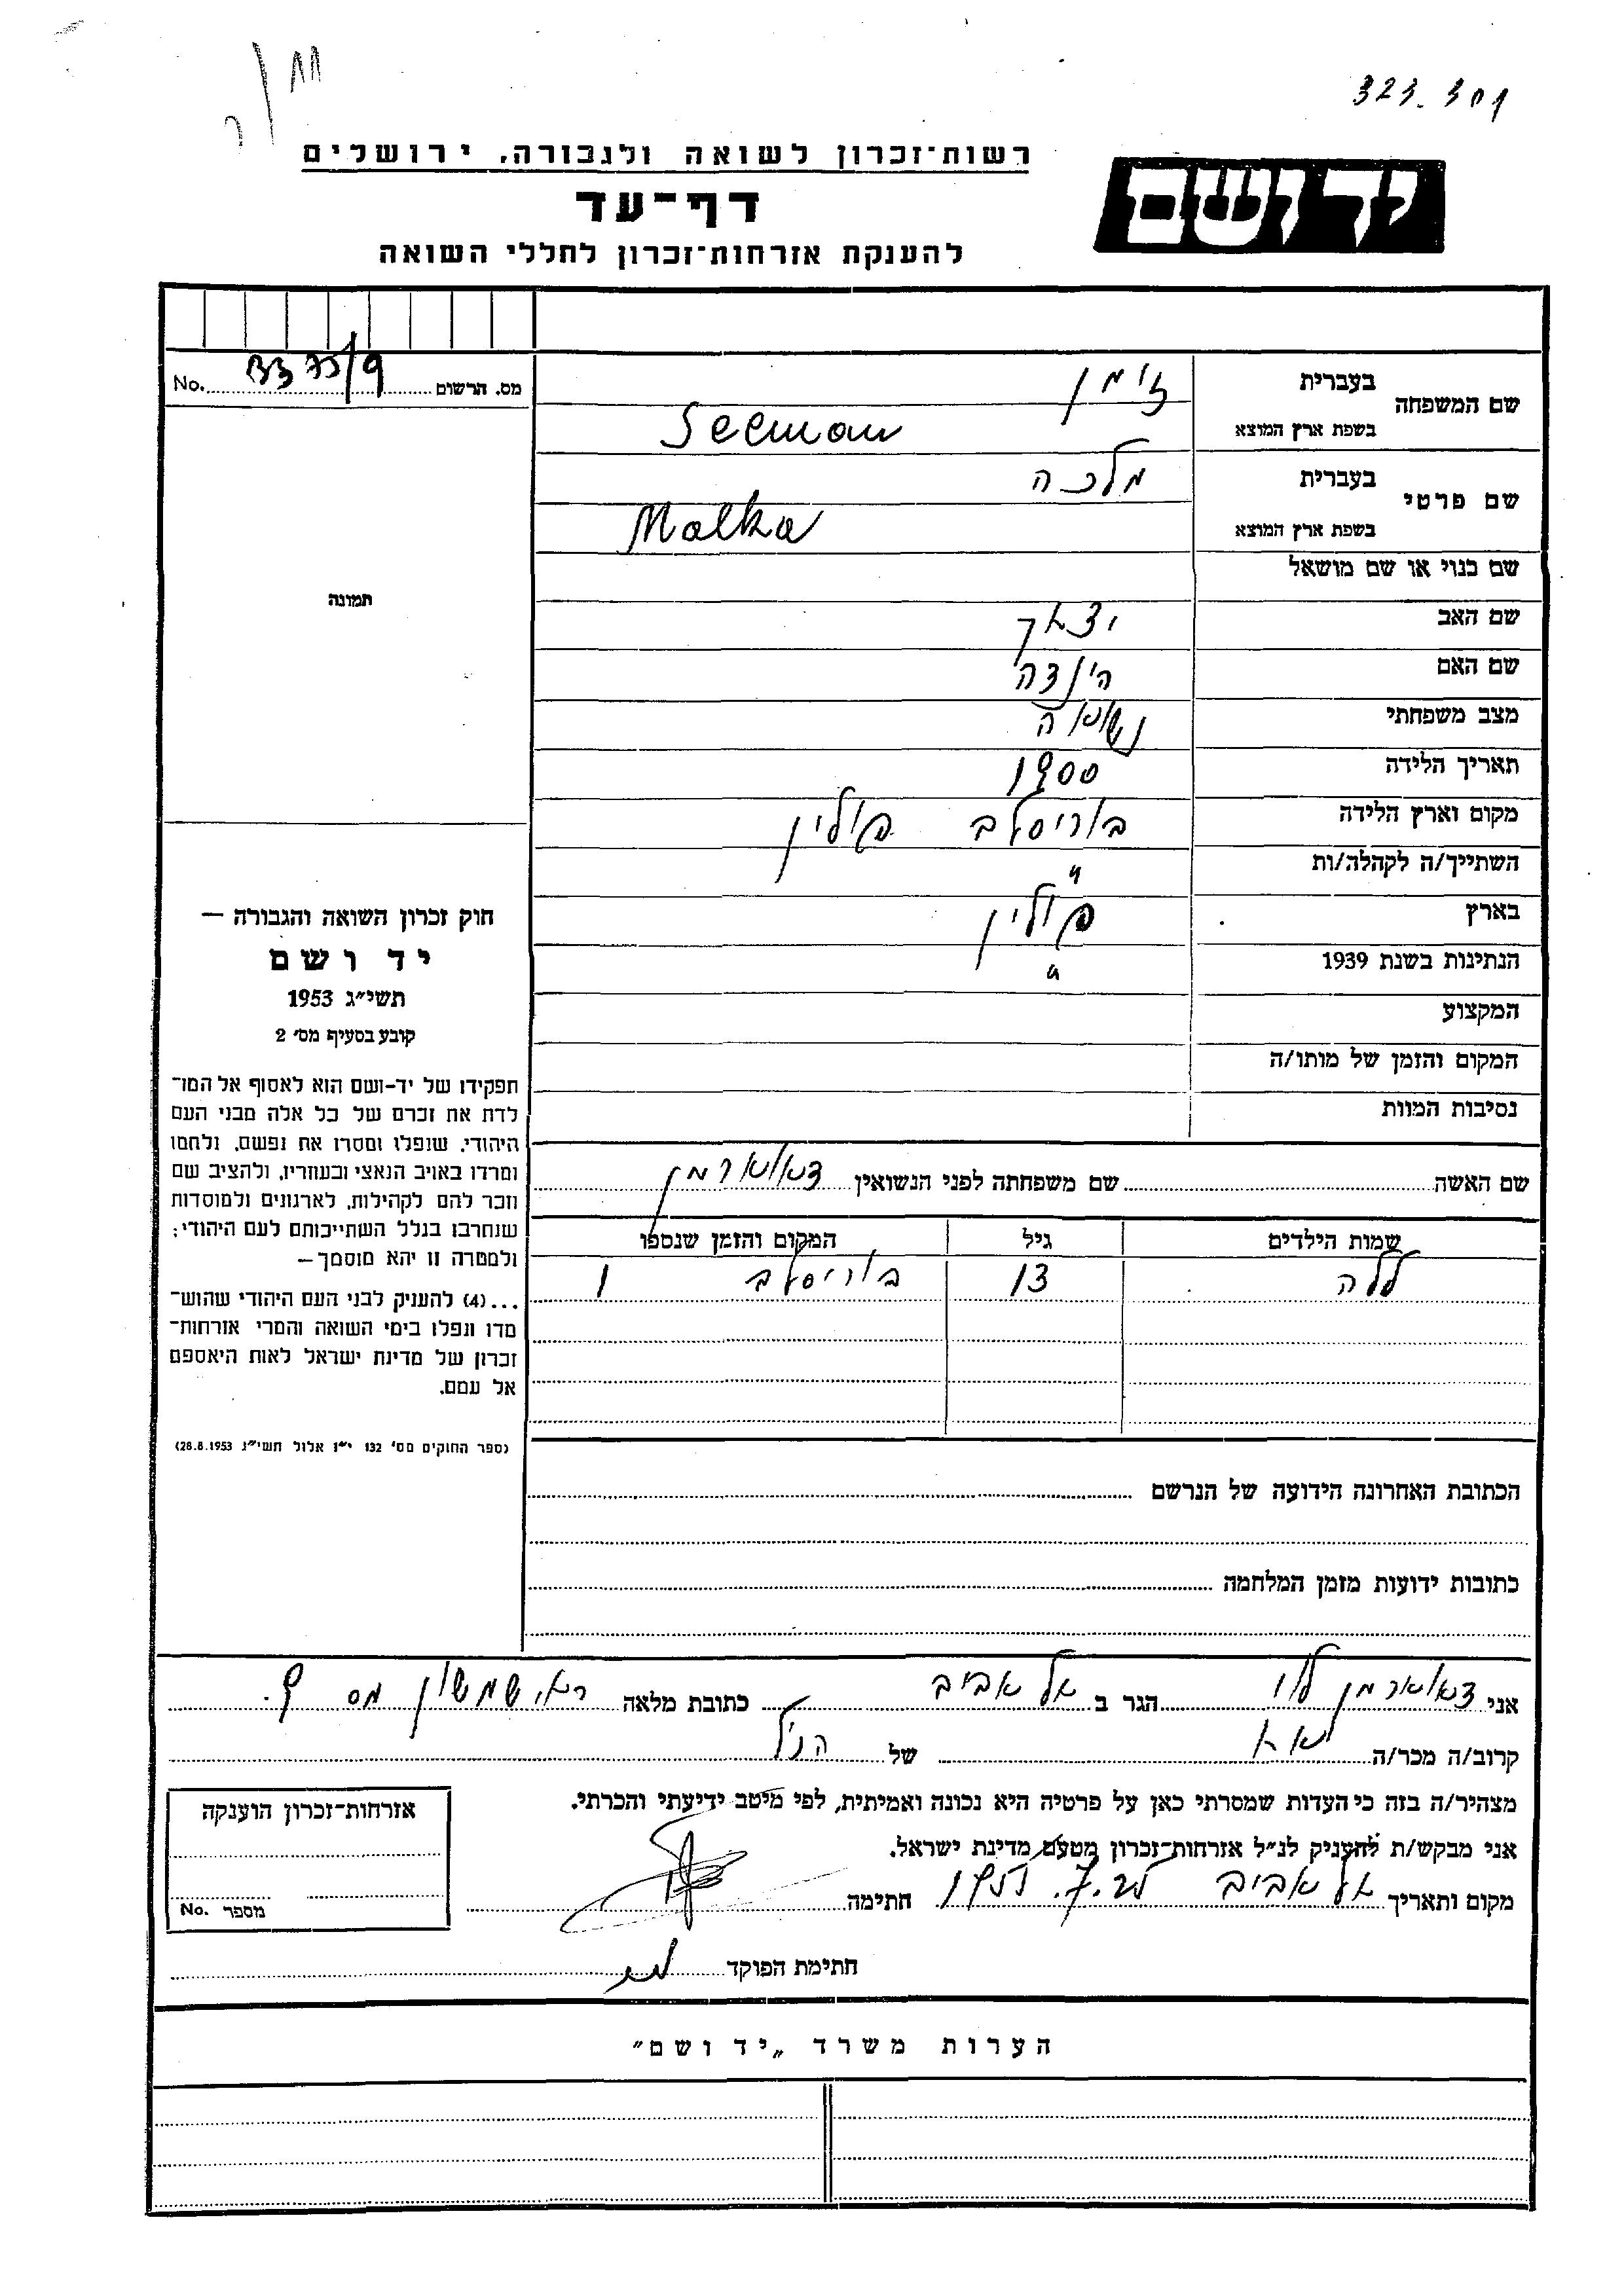 323.301
רשות־זכרון לשואה ולגבורה, ירושלים
יד ושם
דף־עד
להענקת אזרחות־זכרון לחללי השואה
שם המשפחה
בעברית זימן
בשפת ארץ המוצא Seeman
שם פרטי
בעברית מלכה
בשפת ארץ המוצא Malka
שם כנוי או שם מושאל
שם האב יצחק
שם האם הינדה
מצב משפחתי נשואה
תאריך הלידה 1900
מקום וארץ הלידה בוריסלב פולין
השתייך/ה לקהלה/ות "
בארץ פולין
הנתינות בשנת 1939 "
המקצוע
המקום והזמן של מותו/ה
נסיבות המוות
שם האשה שם משפחתה לפני הנשואין צאוארמן
שמות הילדים גיל המקום והזמן שנספו
ללה 13 בוריסלב
הכתובת האחרונה הידועה של הנרשם
כתובות ידועות מזמן המלחמה
מס. הרשום No.
תמונה
חוק זכרון השואה והגבורה —
יד ושם
תשי״ג 1953
קובע בסעיף מס׳ 2
תפקידו של יד־ושם הוא לאסוף אל המו־
לדת את זכרם של כל אלה מבני העם
היהודי, שנפלו ומסרו את נפשם, ולחמו
ומרדו באויב הנאצי ובעוזריו, ולהציב שם
וזכר להם לקהילות, לארגונים ולמוסדות
שנחרבו בגלל השתייכותם לעם היהודי;
ולמטרה זו יהא מוסמך—
...(4) להעניק לבני העם היהודי שהוש־
מדו ונפלו בימי השואה והמרי אזרחות־
זכרון של מדינת ישראל לאות היאספם
אל עמם.
(ספר החוקים מס׳ 132 י״ז אלול תשי״ג 28.8.1953)
אני צאוארמן הגר ב תל אביב כתובת מלאה שמשון מס 9.
קרוב/ה מכר/ה אח של הנ״ל
מצהיר/ה בזה כי העדות שמסרתי כאן על פרטיה היא נכונה ואמיתית, לפי מיטב ידיעתי והכרתי.
אני מבקש/ת להעניק לנ״ל אזרחות־זכרון מטעם מדינת ישראל.
מקום ותאריך תל אביב חתימה
חתימת הפוקד
אזרחות־זכרון הוענקה
מספר No.
הערות משרד „יד ושם״